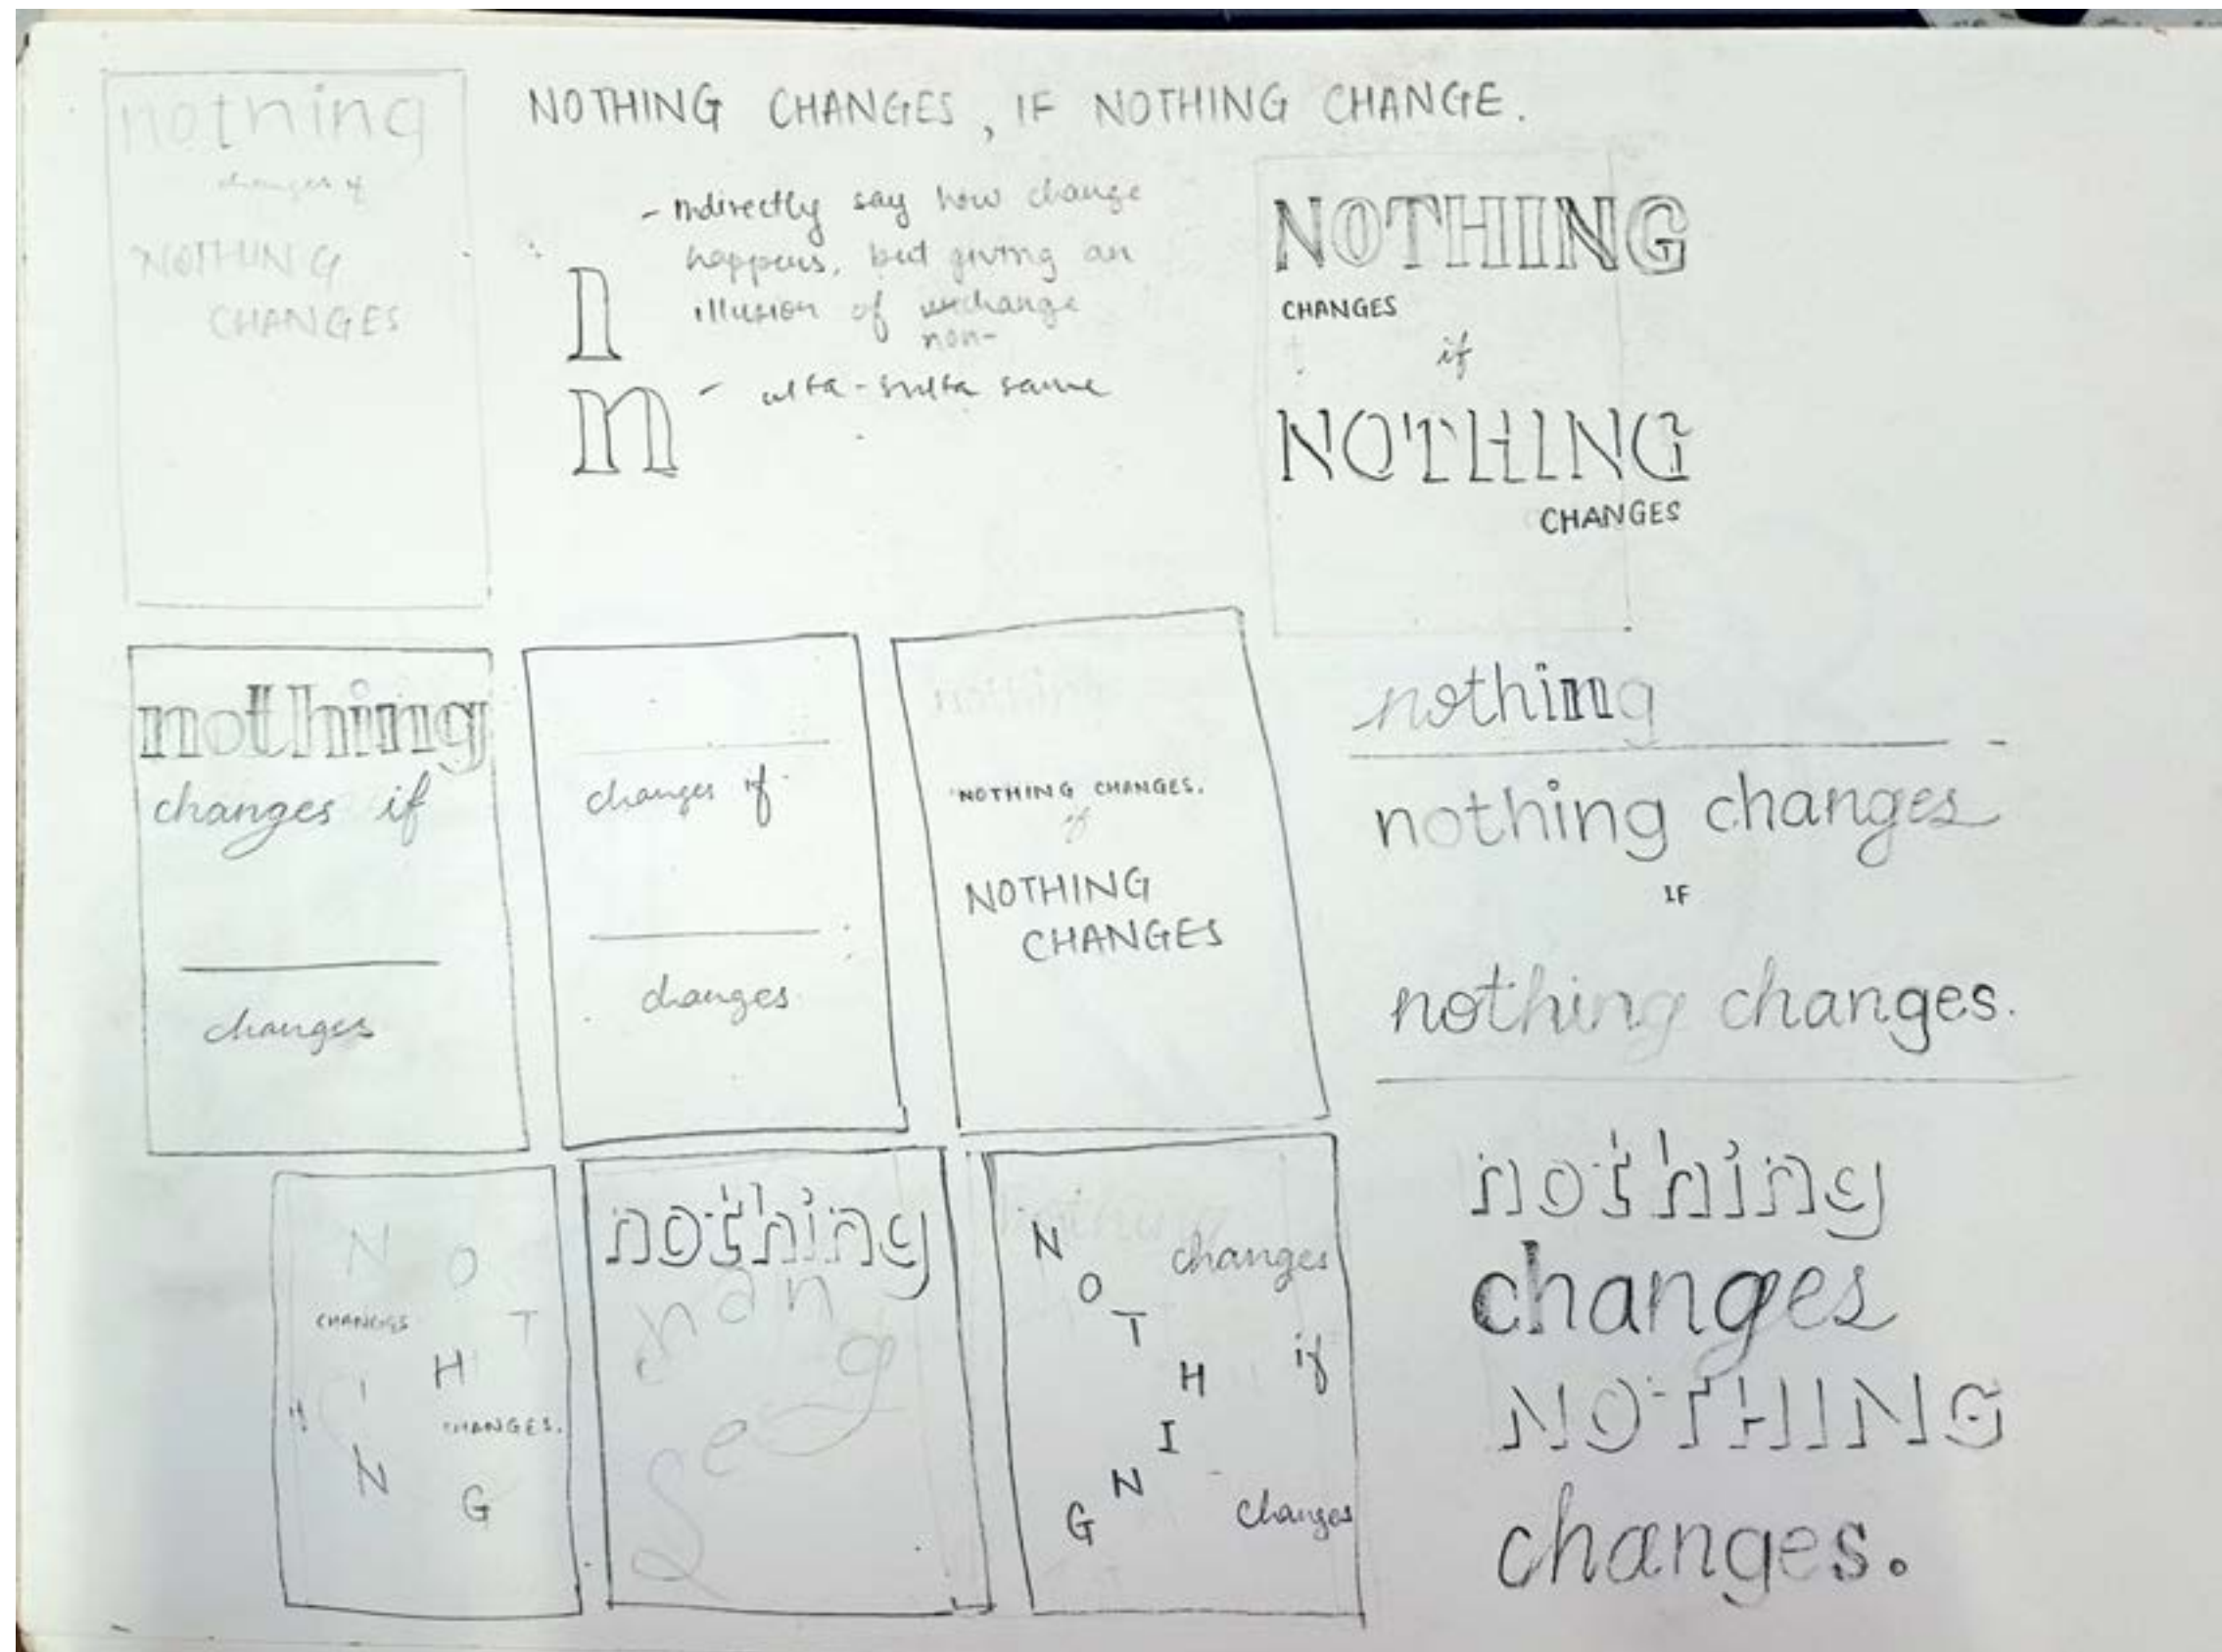 nothing
changes if
NOTHING
CHANGES
NOTHING CHANGES, IF NOTHING CHANGE.
- Indirectly say how change
happens, but giving an
illusion of unchange
non-
n
n
- ulta-sulta same
NOTHING
CHANGES
if
NOTHING
CHANGES
nothing
changes if
changes
changes if
changes
nothing
NOTHING CHANGES.
if
NOTHING
CHANGES
nothing
nothing changes
IF
nothing changes.
N O T
CHANGES
H
I
CHANGES.
N
G
nothing
changes
nothing
N O T H I N G
changes
if
changes
nothing
changes
NOTHING
changes.